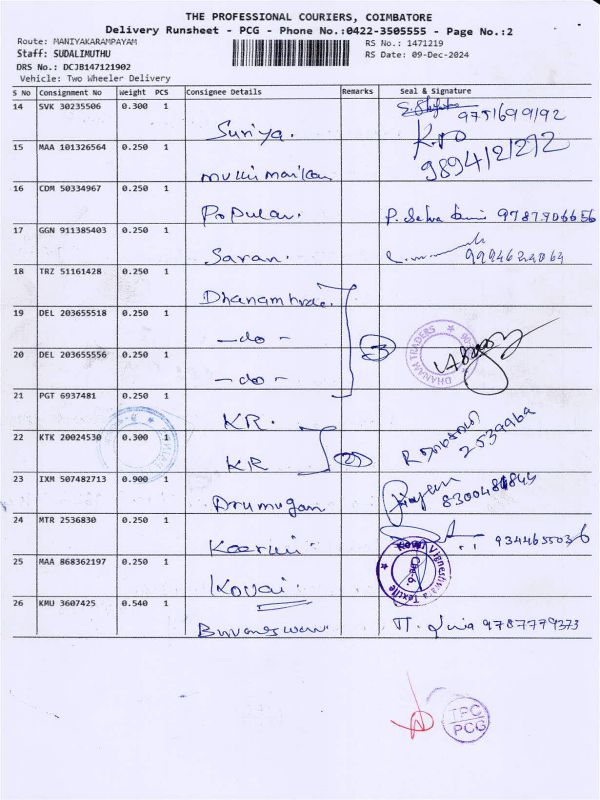 THE PROFESSIONAL COURIERS, COIMBATORE
Delivery Runsheet - PCG - Phone No.:0422-3505555 - Page No.:2
Route: MANIYAKARAMPAYAM
RS No.: 1471219
Staff: SUDALIMUTHU
RS Date: 09-Dec-2024
DRS No.: DCJB147121902
Vehicle: Two Wheeler Delivery
S No Consignment No Weight PCS Consignee Details Remarks Seal & Signature
14 SVK 30235506 0.300 1 Suriya. 9751699192
15 MAA 101326564 0.250 1 9894121212
16 CDM 50334967 0.250 1 Popular. 9787706656
17 GGN 911385403 0.250 1 Saran.
18 TRZ 51161428 0.250 1
19 DEL 203655518 0.250 1 -do- 3 DHANAM TRADERS
20 DEL 203655556 0.250 1 -do-
21 PGT 6937481 0.250 1 KR.
22 KTK 20024530 0.300 1 KR
23 IXM 507482713 0.900 1 Arumugan
24 MTR 2536830 0.250 1 9344655036
25 MAA 868362197 0.250 1 Kovai. Kovai Vigneshwara Textile
26 KMU 3607425 0.540 1 9787779373
TPC
PCG